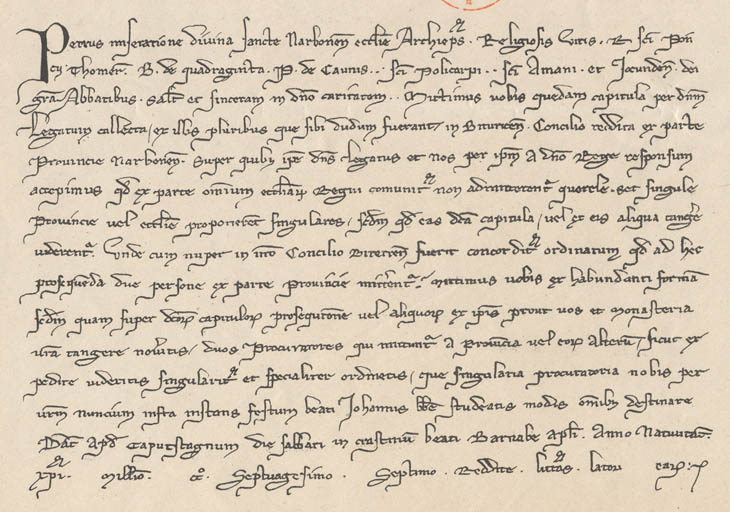 Petrus miseratione divina sancte Narbonen̄ ecclīe Archiep̄s. Religiosis viris. R. sc̄i Pon
cij Thomer̄. B. de quadraginta. P. de Caunis.. sc̄i Policarpi.. sc̄i Amani. et Jocunden̄. dei
gr̄a Abbatibus. salt̄ et sinceram in dn̄o caritatem.. Mittimus vobis quedam capitula per dn̄m
Legatum collecta, ex illis pluribus que sibi dudum fuerant, in Bituricen̄. Concilio reddita ex parte
Provincie Narbonen̄. super quibus ip̄e dn̄s Legatus et nos per ip̄m a dn̄o Rege responsum
accepimus qd̄ ex parte om̄ium eccl̄iaꝝ Regni comunit̄ non admitterent̄ querele. set singule
Provincie vel eccl̄ie proponerent singulares, sc̄dm qd̄ eas dc̄a capitula, vel ex eis aliqua tanḡe
viderent̄. Unde cum nuper in nr̄o Concilio Biterren̄ fuerit concordit̄ ordinatum qd̄ ad hec
prosequēda due persone ex parte Provincie mittent̄, mittimus vobis ex habundanti formā
sc̄dm quam super dc̄orꝝ capituloꝝ prosequtione vel aliquoꝝ ex ip̄is prout vos et monasteria
vr̄a tangere nov̄itis, duos Procuratores qui mittunt̄ a Provīcia vel eoꝝ alterū, sicut ex
pedire videritis singularit̄ et specialiter ordinetis, que singularia procuratoria nobis per
vr̄m nuncium infra instans festum beati Johannis bb̄e studeatis modis om̄ibꝫ destinare
Dat̄. Apd̄ Caputstagnum die sabbati in crastinū beati Barnabe apl̄i. Anno Nativitat̄.
xp̄i. millīo. cc̊. Septuagesimo. Septimo. Reddite. litt̄as. latori eaꝝ.